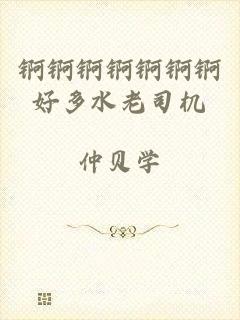 锕锕锕锕锕锕锕
好多水老司机
仲贝学